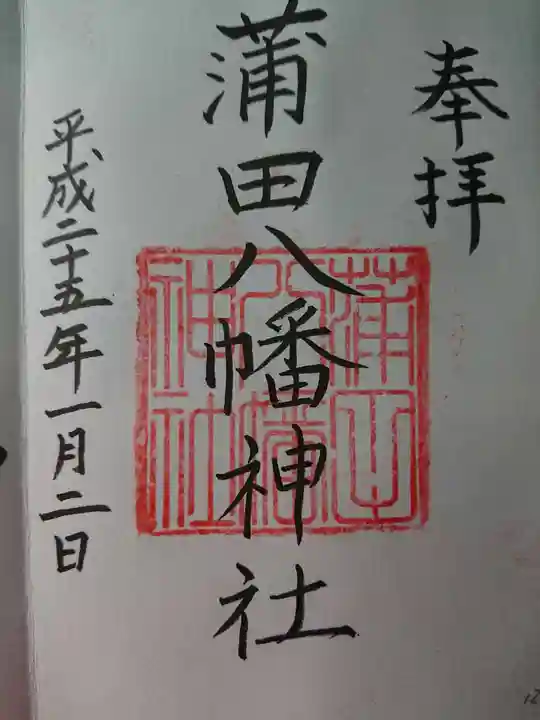 奉拝
蒲田八幡神社
蒲田
八幡
神社
平成二十五年一月二日
12